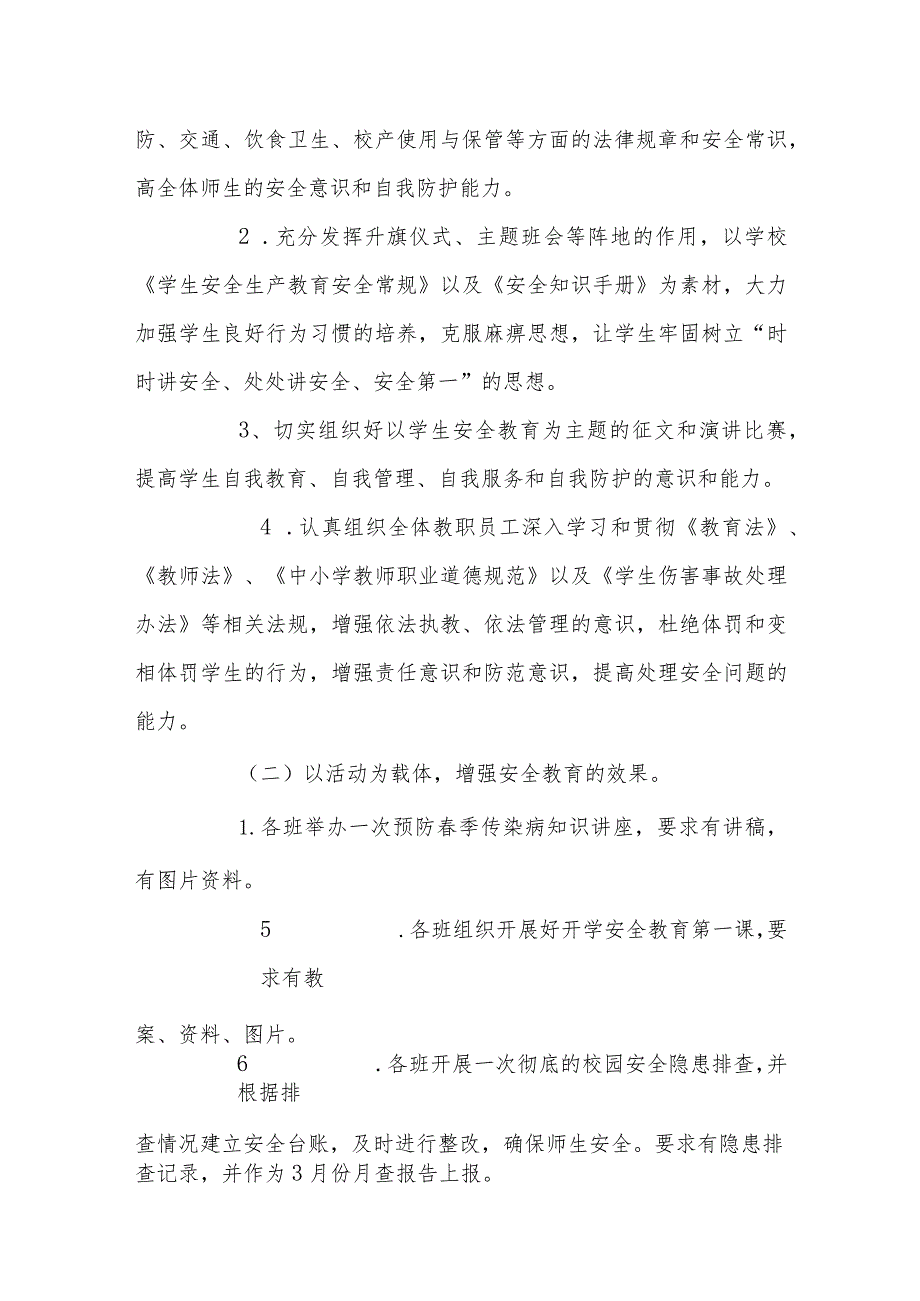 防、交通、饮食卫生、校产使用与保管等方面的法律规章和安全常识，
高全体师生的安全意识和自我防护能力。
2 .充分发挥升旗仪式、主题班会等阵地的作用，以学校
《学生安全生产教育安全常规》以及《安全知识手册》为素材，大力
加强学生良好行为习惯的培养，克服麻痹思想，让学生牢固树立“时
时讲安全、处处讲安全、安全第一”的思想。
3、切实组织好以学生安全教育为主题的征文和演讲比赛，
提高学生自我教育、自我管理、自我服务和自我防护的意识和能力。
4 .认真组织全体教职员工深入学习和贯彻《教育法》、
《教师法》、《中小学教师职业道德规范》以及《学生伤害事故处理
办法》等相关法规，增强依法执教、依法管理的意识，杜绝体罚和变
相体罚学生的行为，增强责任意识和防范意识，提高处理安全问题的
能力。
（二）以活动为载体，增强安全教育的效果。
1.各班举办一次预防春季传染病知识讲座，要求有讲稿，
有图片资料。
5 .各班组织开展好开学安全教育第一课，要
求有教
案、资料、图片。
6 .各班开展一次彻底的校园安全隐患排查，并
根据排
查情况建立安全台账，及时进行整改，确保师生安全。要求有隐患排
查记录，并作为3月份月查报告上报。